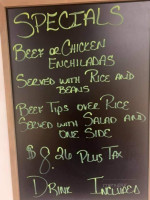 SPECIALS
BEEF OR CHICKEN
ENCHILADAS
SERVED WITH RICE AND
BEANS
BEEF TIPS OVER RICE
SERVED WITH SALAD AND
ONE SIDE
$8.26 PLUS TAX
DRINK INCLUDED